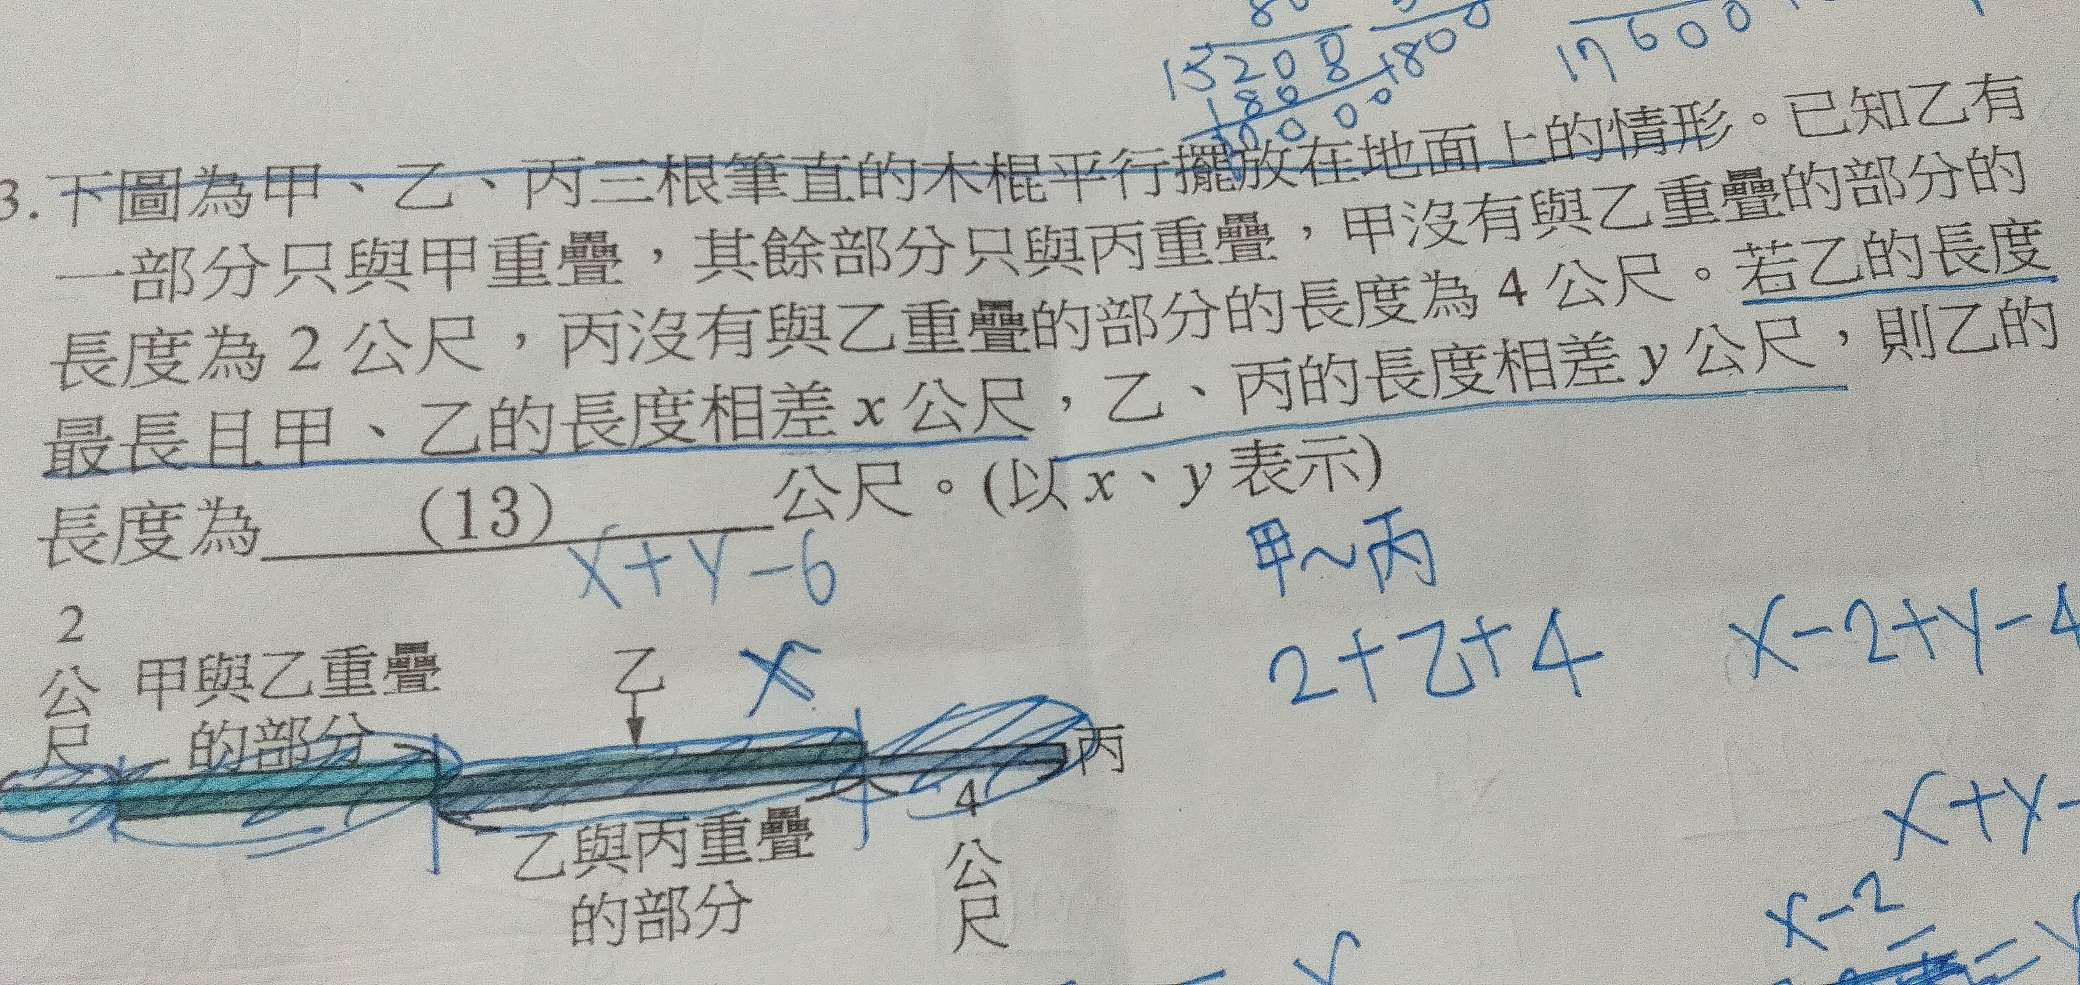 15208 +800
1800
17600
3.下圖為甲、乙、丙三根筆直的木棍平行擺放在地面上的情形。已知乙有
一部分只與甲重疊,其餘部分只與丙重疊,甲沒有與乙重疊的部分的
長度為2公尺,丙沒有與乙重疊的部分的長度為4公尺。若乙的長度
最長且甲、乙的長度相差x公尺,乙、丙的長度相差y公尺,則乙的
長度為 (13) 公尺。(以x、y表示)
x+y-6
甲~丙
2+乙+4
x-2+y-4
2公尺
甲與乙重疊的部分
乙
x
丙
乙與丙重疊的部分
4公尺
x+y-
x-2